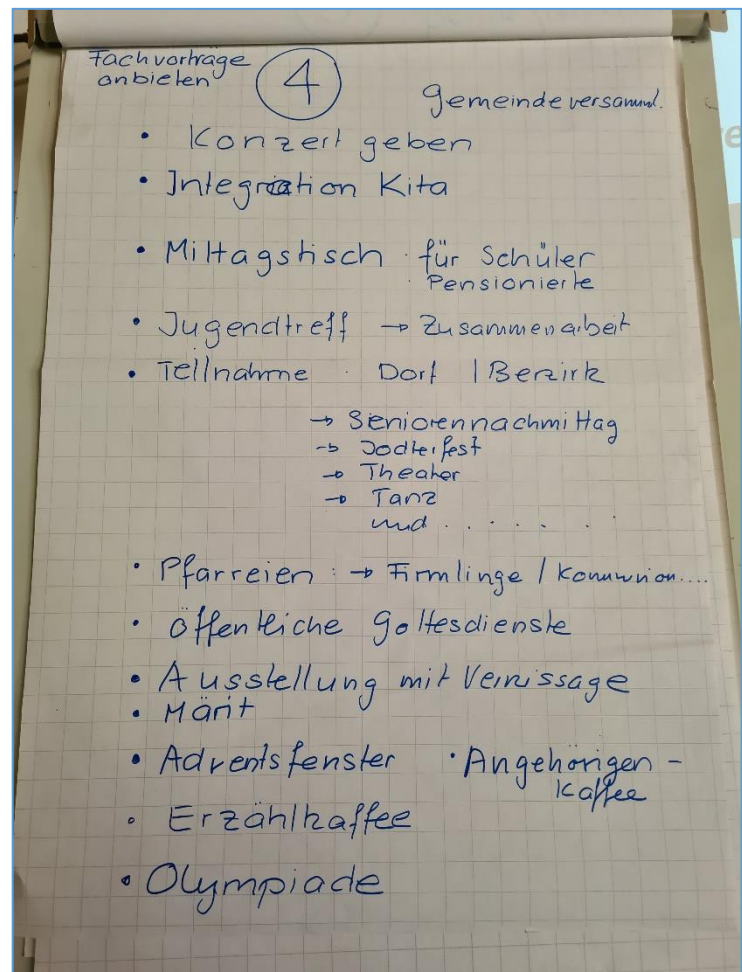 Fachvorträge
anbieten
4
Gemeindeversamml.
• Konzert geben
• Integration Kita
• Mittagstisch für Schüler
Pensionierte
• Jugendtreff → Zusammenarbeit
• Teilnahme Dorf / Bezirk
→ Seniorennachmittag
→ Jodlerfest
→ Theater
→ Tanz
und . . . . . .
• Pfarreien : → Firmlinge / Kommunion....
• öffentliche Gottesdienste
• Ausstellung mit Vernissage
• Märit
• Adventsfenster • Angehörigen-
Kaffee
• Erzählkaffee
• Olympiade